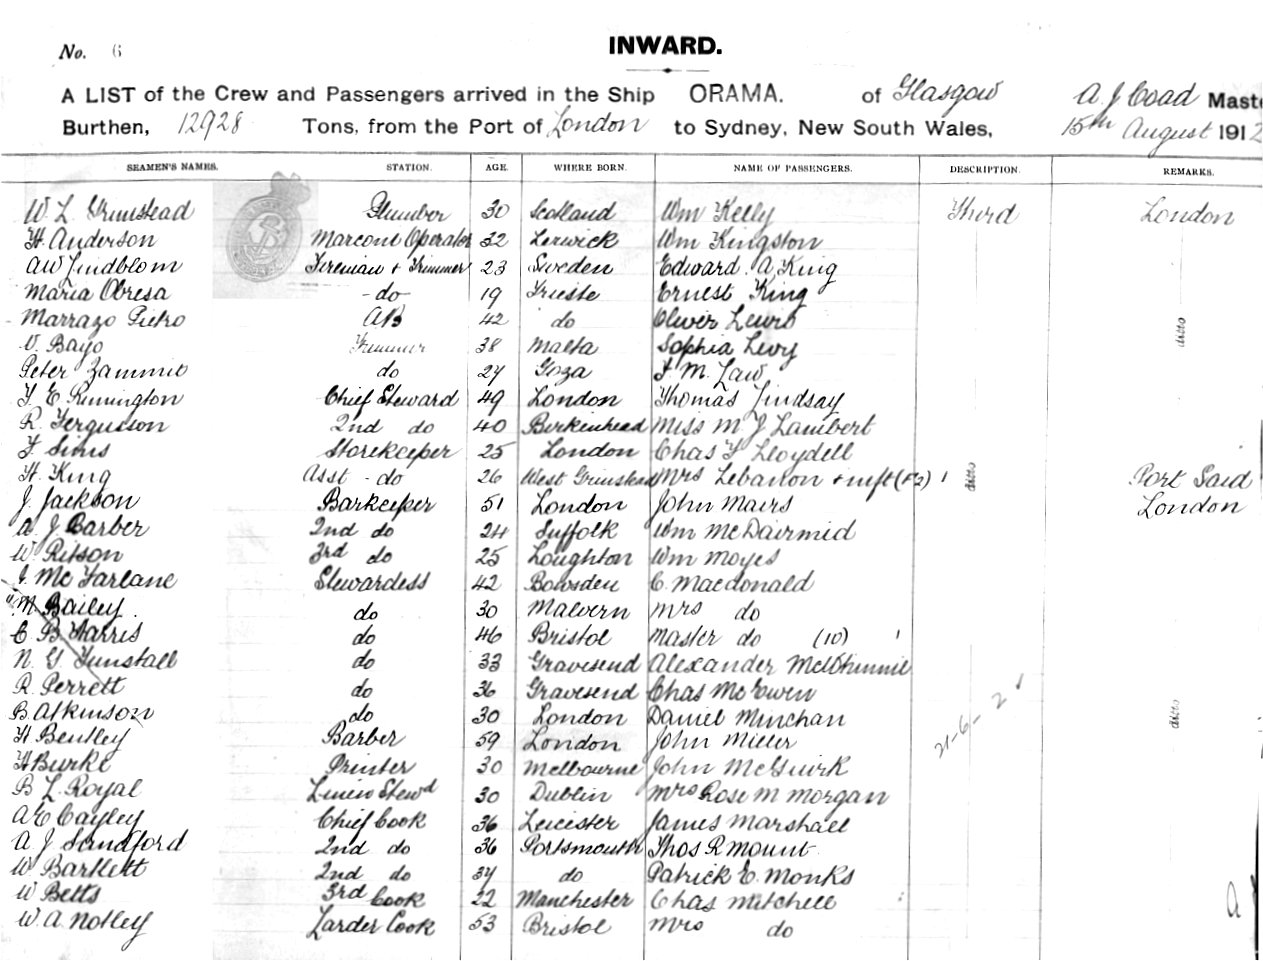 No. 6
INWARD.
A LIST of the Crew and Passengers arrived in the Ship ORAMA. of Glasgow A. J Coad Maste
Burthen, 12928 Tons, from the Port of London to Sydney, New South Wales, 15th August 1912
SEAMEN'S NAMES. STATION. AGE. WHERE BORN. NAME OF PASSENGERS. DESCRIPTION. REMARKS.
W L Grinstead Plumber 30 Scotland Wm Kelly Third London
H. Anderson Marconi Operator 22 Lerwick Wm Kingston
AW Lindblom Fireman + Trimmer 23 Sweden Edward A King
Maria Obresa do 19 Trieste Ernest King
Marrazo Pietro AB 42 do Oliver Lewis ditto
V. Bayo Trimmer 38 Malta Sophia Levy
Peter Zammit do 27 Goza F M. Law
F. E Rimington Chief Steward 49 London Thomas Lindsay
R. Fergusson 2nd do 40 Berkenhead Miss M J Lambert
F Sims Storekeeper 25 London Chas F Lloydell
H. King Asst do 26 West Grinstead Mrs Lebanon + inft (F2) 1 ditto Port Said
J. Jackson Barkeeper 51 London John Mairs London
A J Barber 2nd do 24 Suffolk Wm McDairmid
W Ritson 3rd do 25 Loughton Wm Moyes
J. McFarlane Stewardess 42 Bowsden C. Macdonald
M Bailey. do 30 Malvern Mrs do
C B Harris do 46 Bristol Master do (10) 1
N. G Tunstall do 33 Gravesend Alexander McWhinnie
R. Perrett do 36 Gravesend Chas McEwen
B. Atkinson do 30 London Daniel Minchan ditto
H Bentley Barber 59 London John Miller 21-6-2
H Burke Printer 30 Melbourne John McGuirk
B L. Royal Linen Stewd 30 Dublin Mrs Rose M Morgan
A E Cayley Chief Cook 36 Leicester James Marshall
A J Sandford 2nd do 36 Portsmouth Thos R Mount
W Bartlett 2nd do 37 do Patrick E. Monks
W Betts 3rd Cook 22 Manchester Chas Mitchell A
W. A Notley Larder Cook 53 Bristol Mrs do